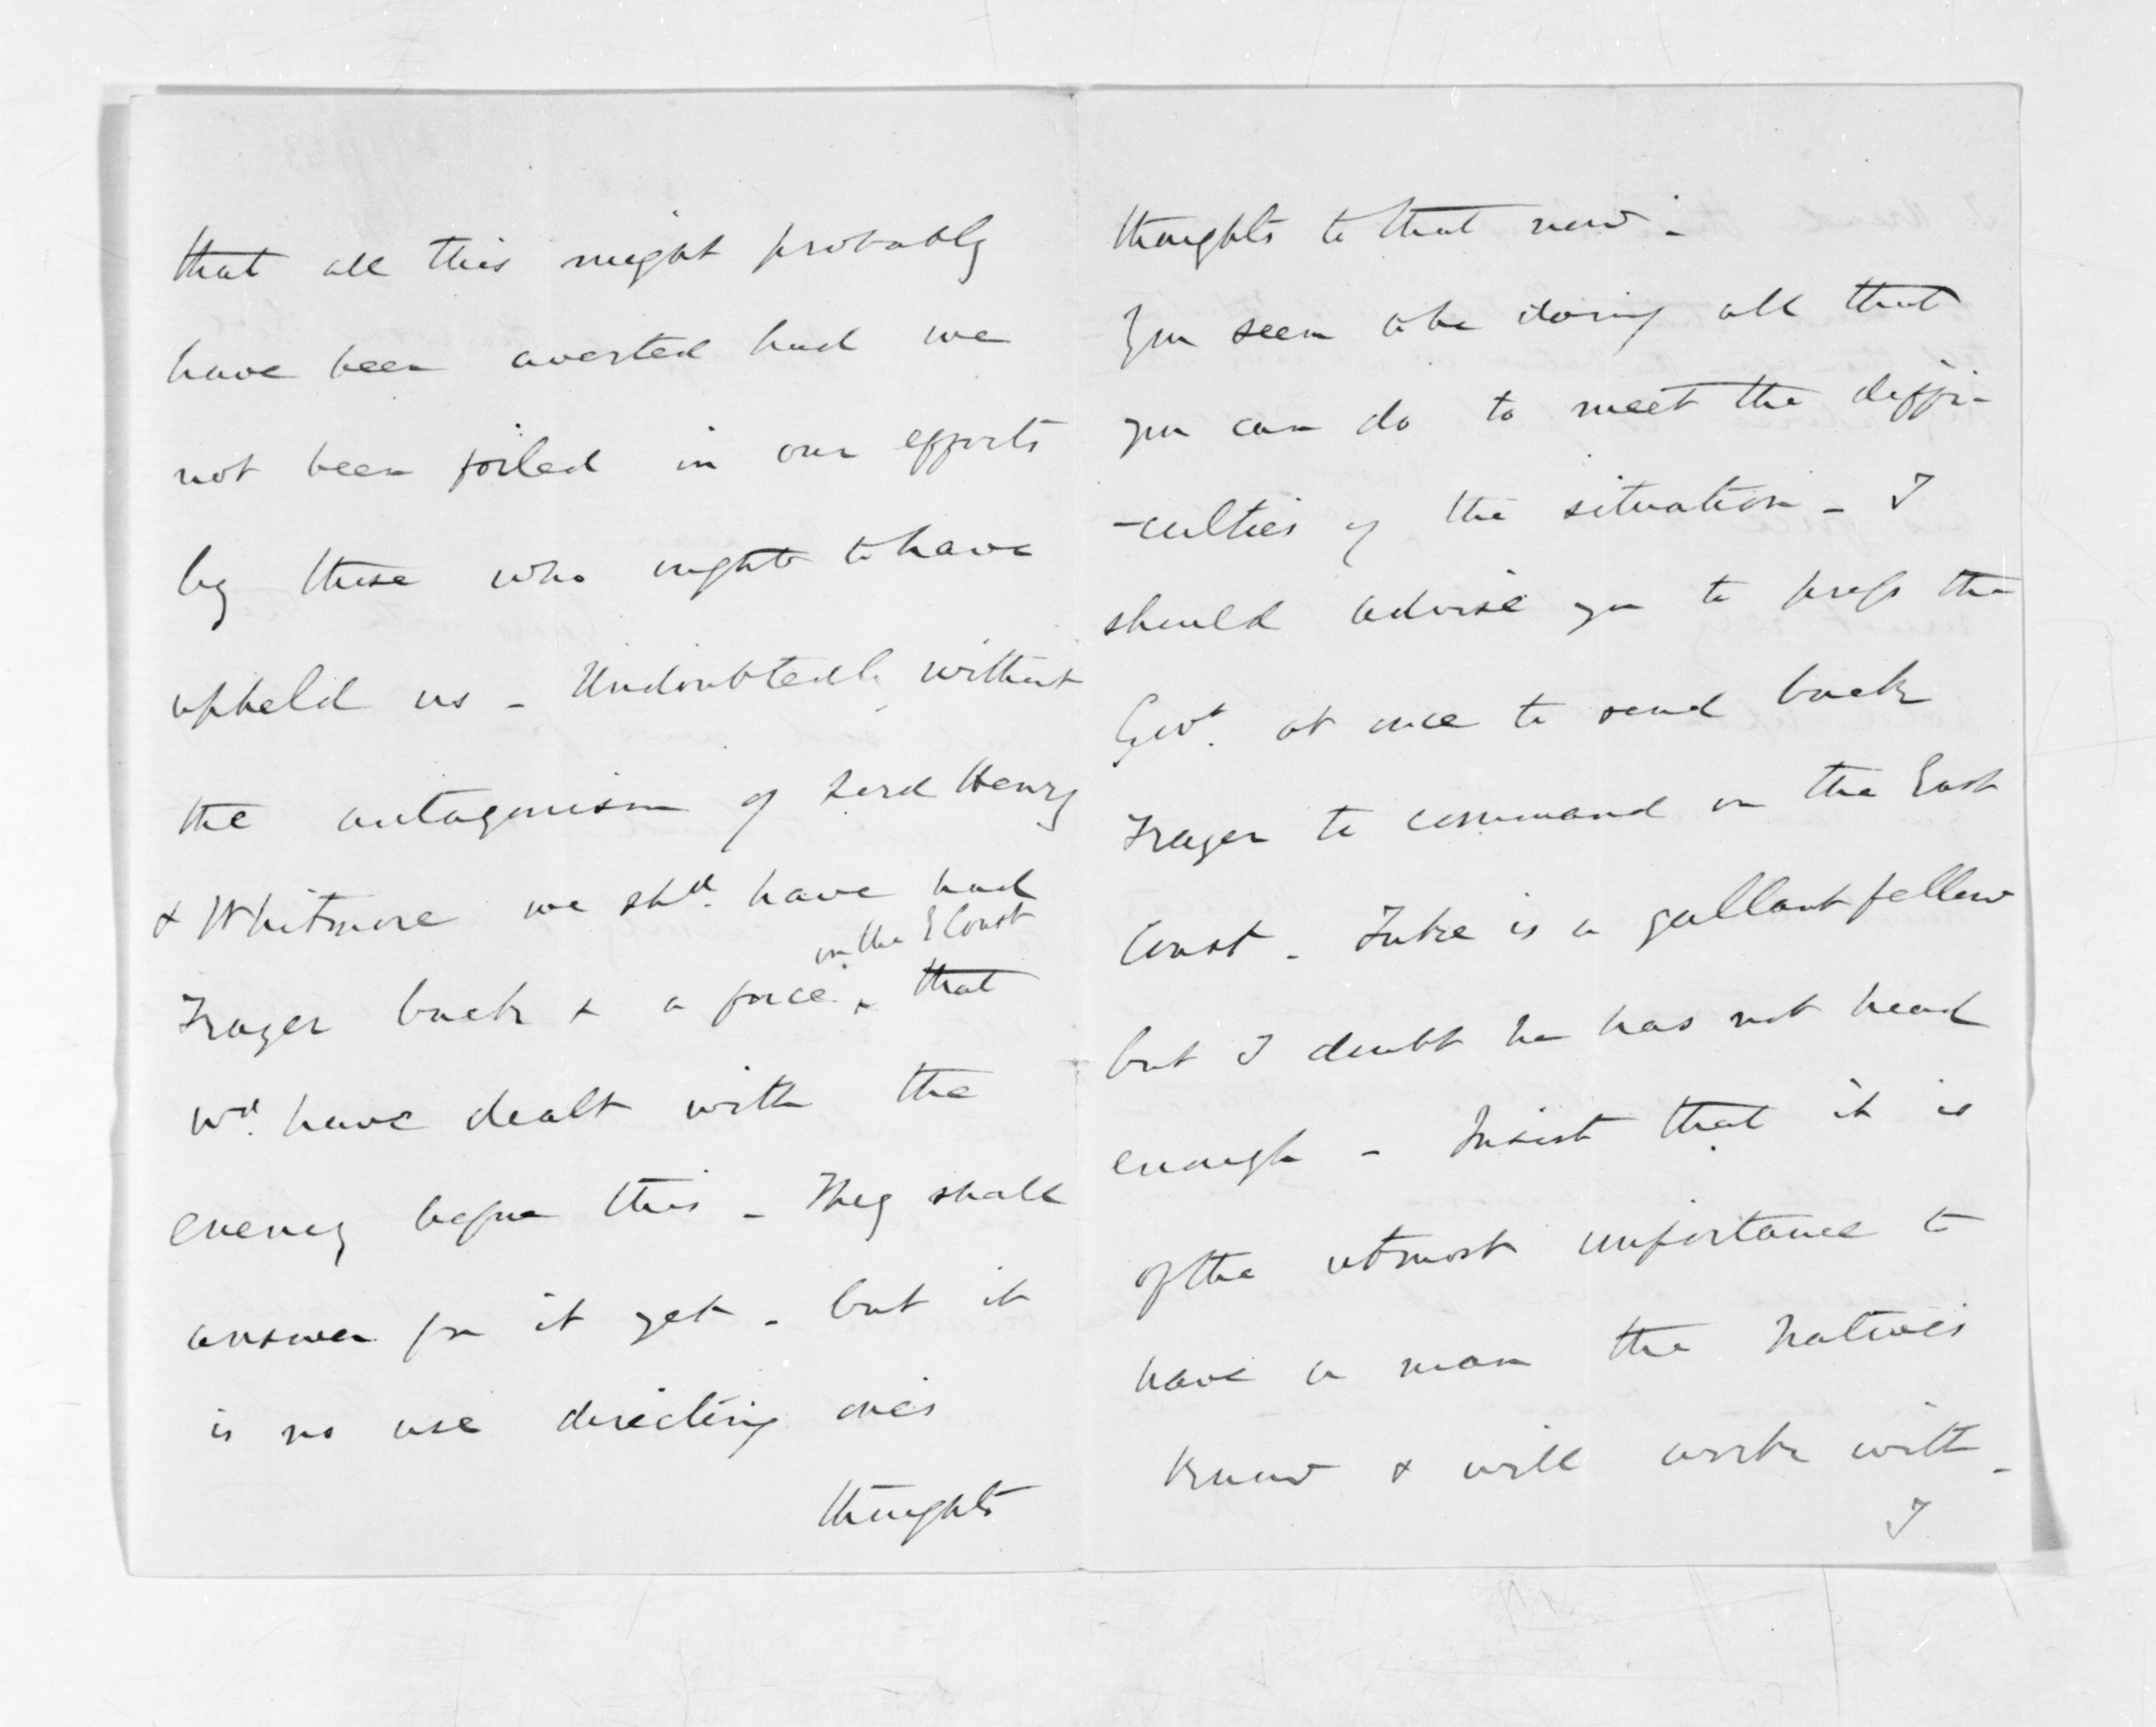 that all this might probably
have been averted had we
not been foiled in our efforts
by those who ought to have
upheld us - Undoubtedly without
the antagonism of Lord Henry
& Whitmore we shd. have had
on the E Coast
Frazer back & a force & that
wd. have dealt with the
enemy before this - They shall
answer for it yet - but it
is no use directing one's
thoughts
thoughts to that now -
You seem to be doing all that
you can do to meet the diffi-
-culties of the situation - I
should advise you to press the
Govt. at once to send back
Frazer to command on the East
Coast - Tuke is a gallant fellow
but I doubt he has not head
enough - Insist that it is
of the utmost importance to
have a man the Natives
know & will work with -
I